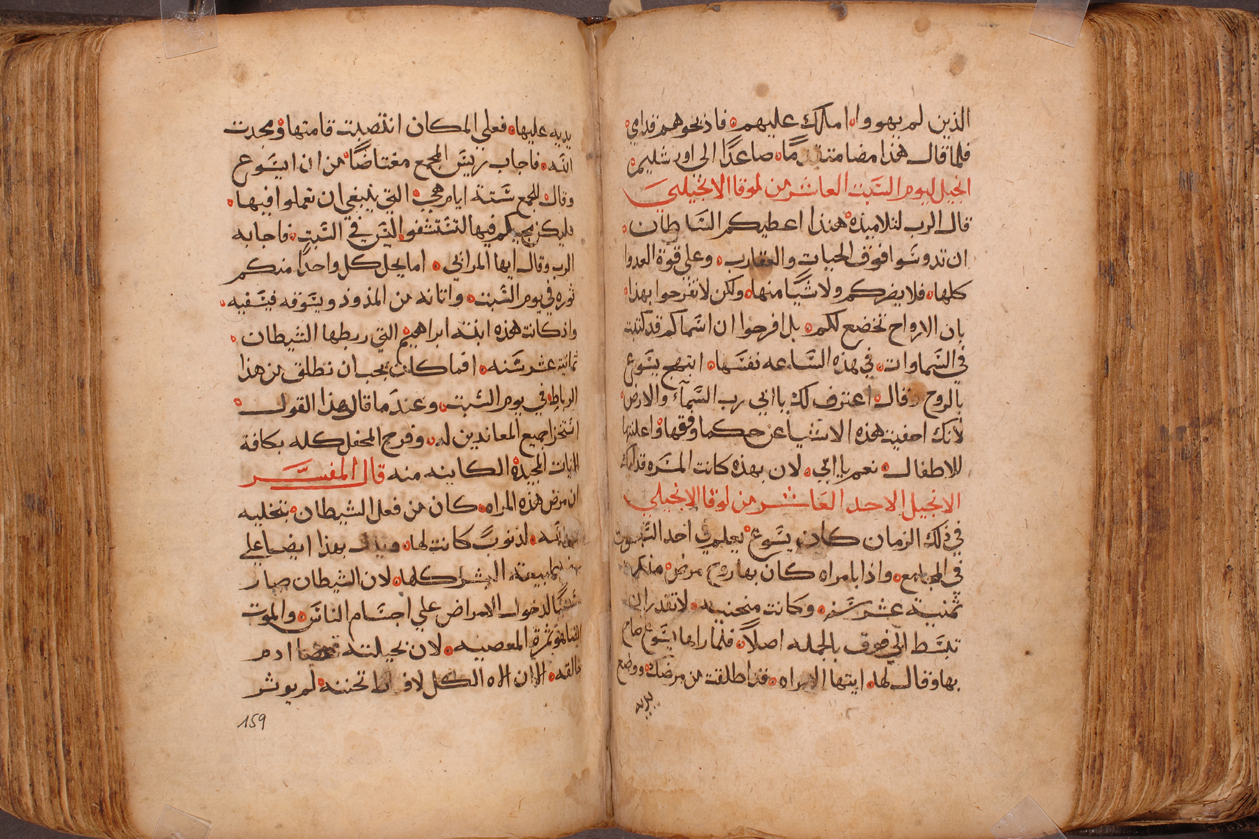 الذين لم يهووا املك عليهم فاذبحوهم قدامي
فلما قال هذا مضا متقدمًا صاعدًا الى اورشليم
انجيل ليوم السبت العاشر من لوقا الانجيلي
قال الرب لتلاميذه هنذا اعطيكم السلطان
ان تدوسوا فوق الحيات والعقارب وعلى قوة العدوا
كلها فلا يضركم ولا شيًا منها ولكن لا تفرحوا بهذا
بان الارواح تخضع لكم بل افرحوا ان اسماكم قد كتبت
في السماوات في هذه الساعه نفسها ابتهج يسوع
بالروح وقال اعترف لك ياابي رب السمآء والارض
لانك اخفيت هذه الاشيا عن حكما وفقها واعلنتها
للاطفال نعم ياابي لان بهذه كانت المسره قدامك
الانجيل الاحد العاشر من لوقا الانجيلي
في ذلك الزمان كان يسوع يعلم في احد السبوت
في المجامع واذا بامراه كان بها روح مرض منذ
ثمنية عشر سنه وكانت منحنيه لا تقدر ان
تبسط الى فوق بالجمله اصلاً فلما راها يسوع صاح
بها وقال لها ايتها الامراه قد اطلقت من مرضك ووضع
يديه
يديه عليها فعلى المكان انتصبت قامتها ومجدت
الله فاجاب ريس المجمع مغتاضًا من ان يسوع
وقال للجمع ستة ايام هي التي ينبغي ان تعملوا فيها
فليكن مجيكم فيها لتستشفوا ليس في السبت فاجابه
الرب وقال ايها المرائي اما يحل كل واحدًا منكم
ثوره في يوم السبت واتانه من المذود ويسوقه فيسقيه
واذ كانت هذه ابنة ابراهيم التي ربطها الشيطان
ثمانية عشر سنه افما كان يجب ان تطلق من هذا
الرباط في يوم السبت وعندما قال هذا القول
اختزا جميع المعاندين له وفرح المحفل كله بكافة
الايات المجيدة الكاينه منه قال المفسر
ان مرض هذه المراه كان من فعل الشيطان بتخليه
الله لذنوب كانت لها ويدل بهذا ايضا على
طبيعة البشر كلها لان الشيطان صار
سببًا لدخول الامراض على اجسام الناس والموت
ثمرة المعصيه لان بحيلته ادم
خالقه الان اله الكل لافراط تحننه لم يوثر
159